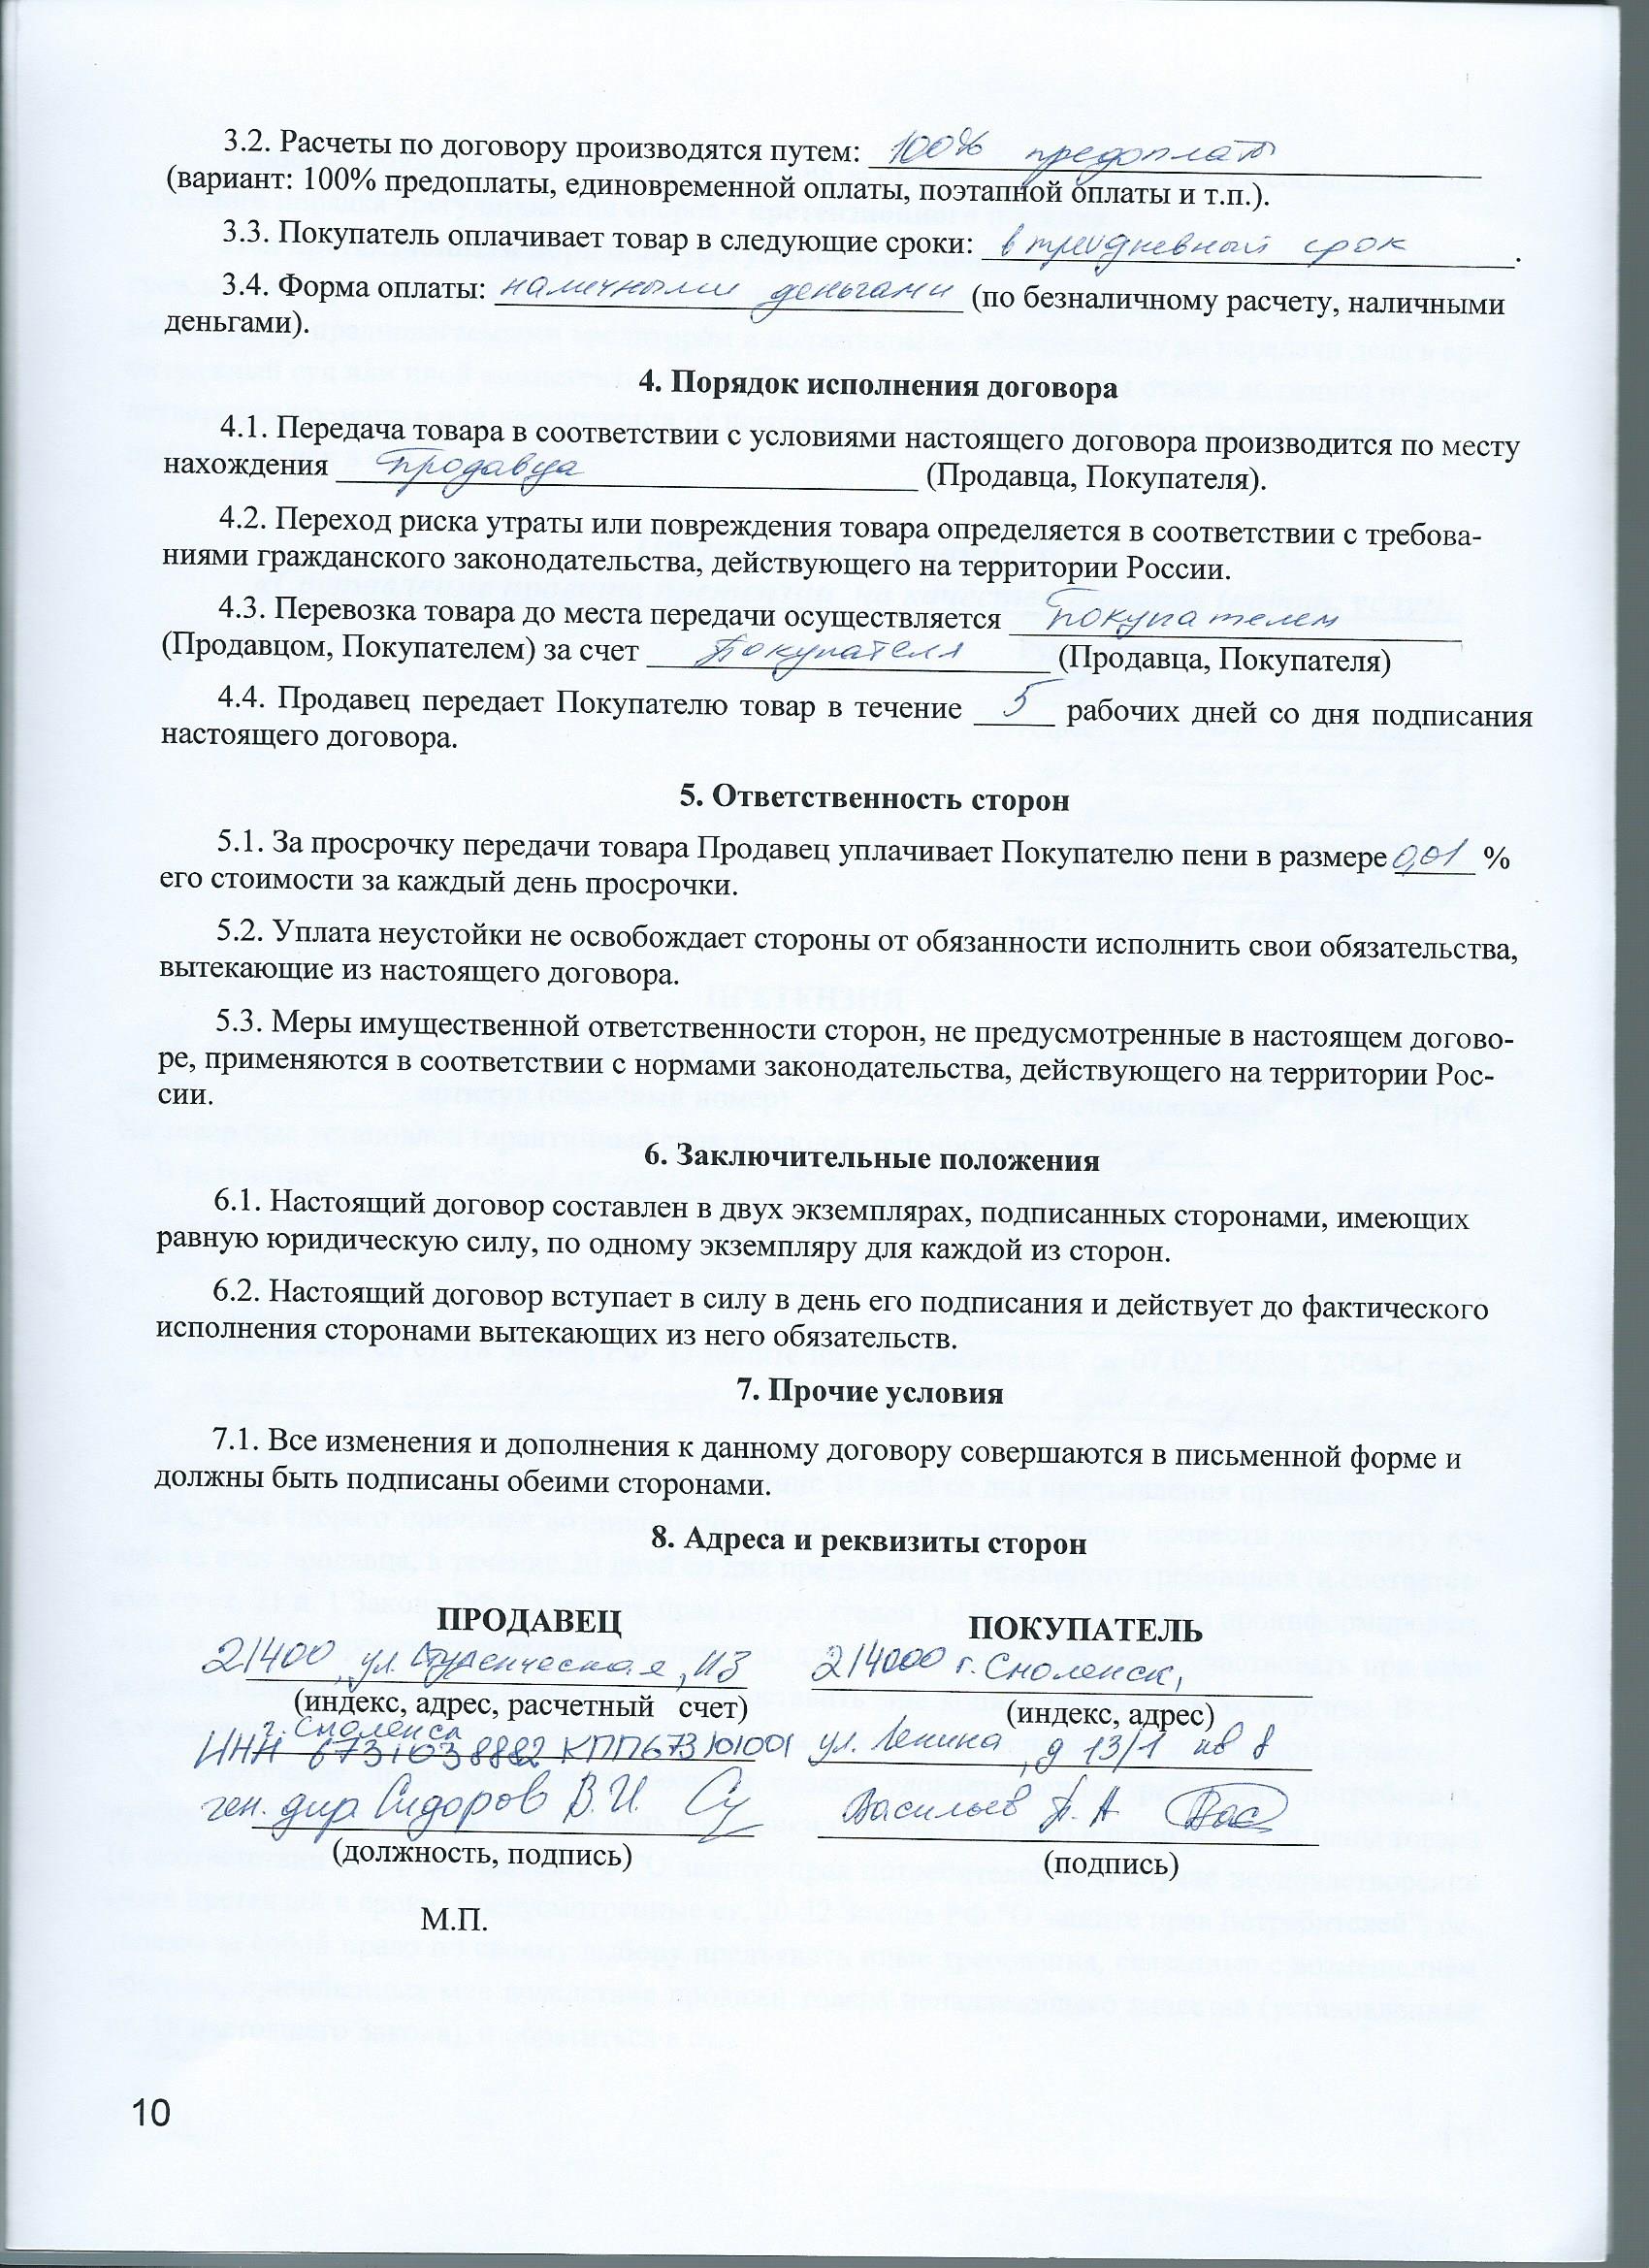 3.2. Расчеты по договору производятся путем: 100% предоплаты
(вариант: 100% предоплаты, единовременной оплаты, поэтапной оплаты и т.п.).
3.3. Покупатель оплачивает товар в следующие сроки: в трехдневный срок.
3.4. Форма оплаты: наличными деньгами (по безналичному расчету, наличными
деньгами).
4. Порядок исполнения договора
4.1. Передача товара в соответствии с условиями настоящего договора производится по месту
нахождения Продавца (Продавца, Покупателя).
4.2. Переход риска утраты или повреждения товара определяется в соответствии с требова-
ниями гражданского законодательства, действующего на территории России.
4.3. Перевозка товара до места передачи осуществляется Покупателем
(Продавцом, Покупателем) за счет Покупателя (Продавца, Покупателя)
4.4. Продавец передает Покупателю товар в течение 5 рабочих дней со дня подписания
настоящего договора.
5. Ответственность сторон
5.1. За просрочку передачи товара Продавец уплачивает Покупателю пени в размере 0,01 %
его стоимости за каждый день просрочки.
5.2. Уплата неустойки не освобождает стороны от обязанности исполнить свои обязательства,
вытекающие из настоящего договора.
5.3. Меры имущественной ответственности сторон, не предусмотренные в настоящем догово-
ре, применяются в соответствии с нормами законодательства, действующего на территории Рос-
сии.
6. Заключительные положения
6.1. Настоящий договор составлен в двух экземплярах, подписанных сторонами, имеющих
равную юридическую силу, по одному экземпляру для каждой из сторон.
6.2. Настоящий договор вступает в силу в день его подписания и действует до фактического
исполнения сторонами вытекающих из него обязательств.
7. Прочие условия
7.1. Все изменения и дополнения к данному договору совершаются в письменной форме и
должны быть подписаны обеими сторонами.
8. Адреса и реквизиты сторон
ПРОДАВЕЦ ПОКУПАТЕЛЬ
21400, ул. Студенческая, 214000 г. Смоленск,
(индекс, адрес, расчетный счет) (индекс, адрес)
г. Смоленск
ИНН 6731038882 КПП673101001 ул. Ленина, д 13/1 кв 8
ген. дир. Сидоров В.И. Васильев П. А
(должность, подпись) (подпись)
М.П.
10